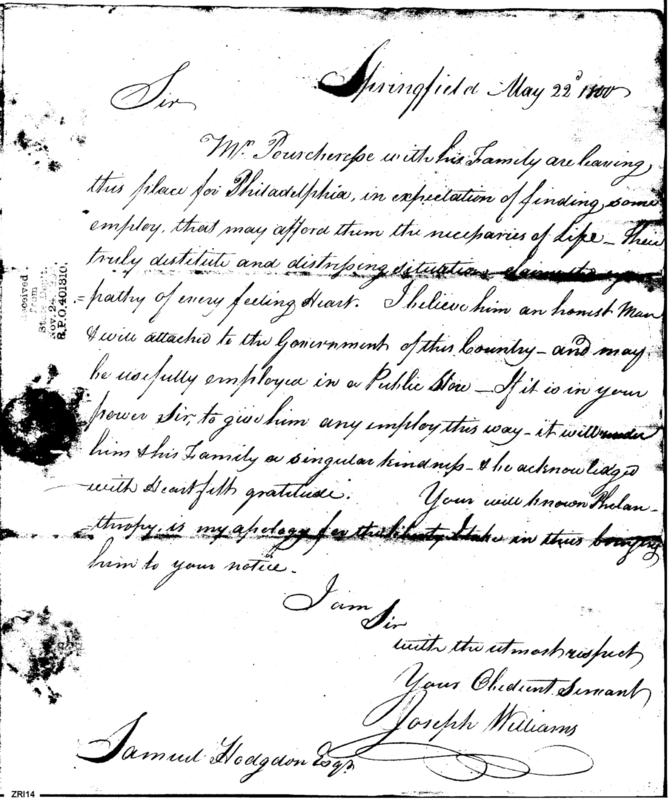 Springfield May 22d 1800
Sir
Mr. with his Family are leaving
this place for Philadelphia, in expectation of finding some
employ, that may afford them the necessaries of Life – Their
truly distitute and distressing situation
pathy of every feeling Heart. I believe him an honest Man
& well attached to the Government of this Country – and may
be usefully employed in a Public Store – If it is in your
power Sir, to give him any employ this way – it will render
him & his Family a singular kindness – & be acknowledged
with Heartfelt gratitude. Your well known Phelan-
thropy, is my apology for the liberty I take in thus
him to your notice –
I am
Sir
with the utmost respect
Your Obedient Servant
Joseph Williams
Samuel Hodgdon Esqr.
Received
From
St.
Nov. 24,
R.P.O. 401810.
ZRI14